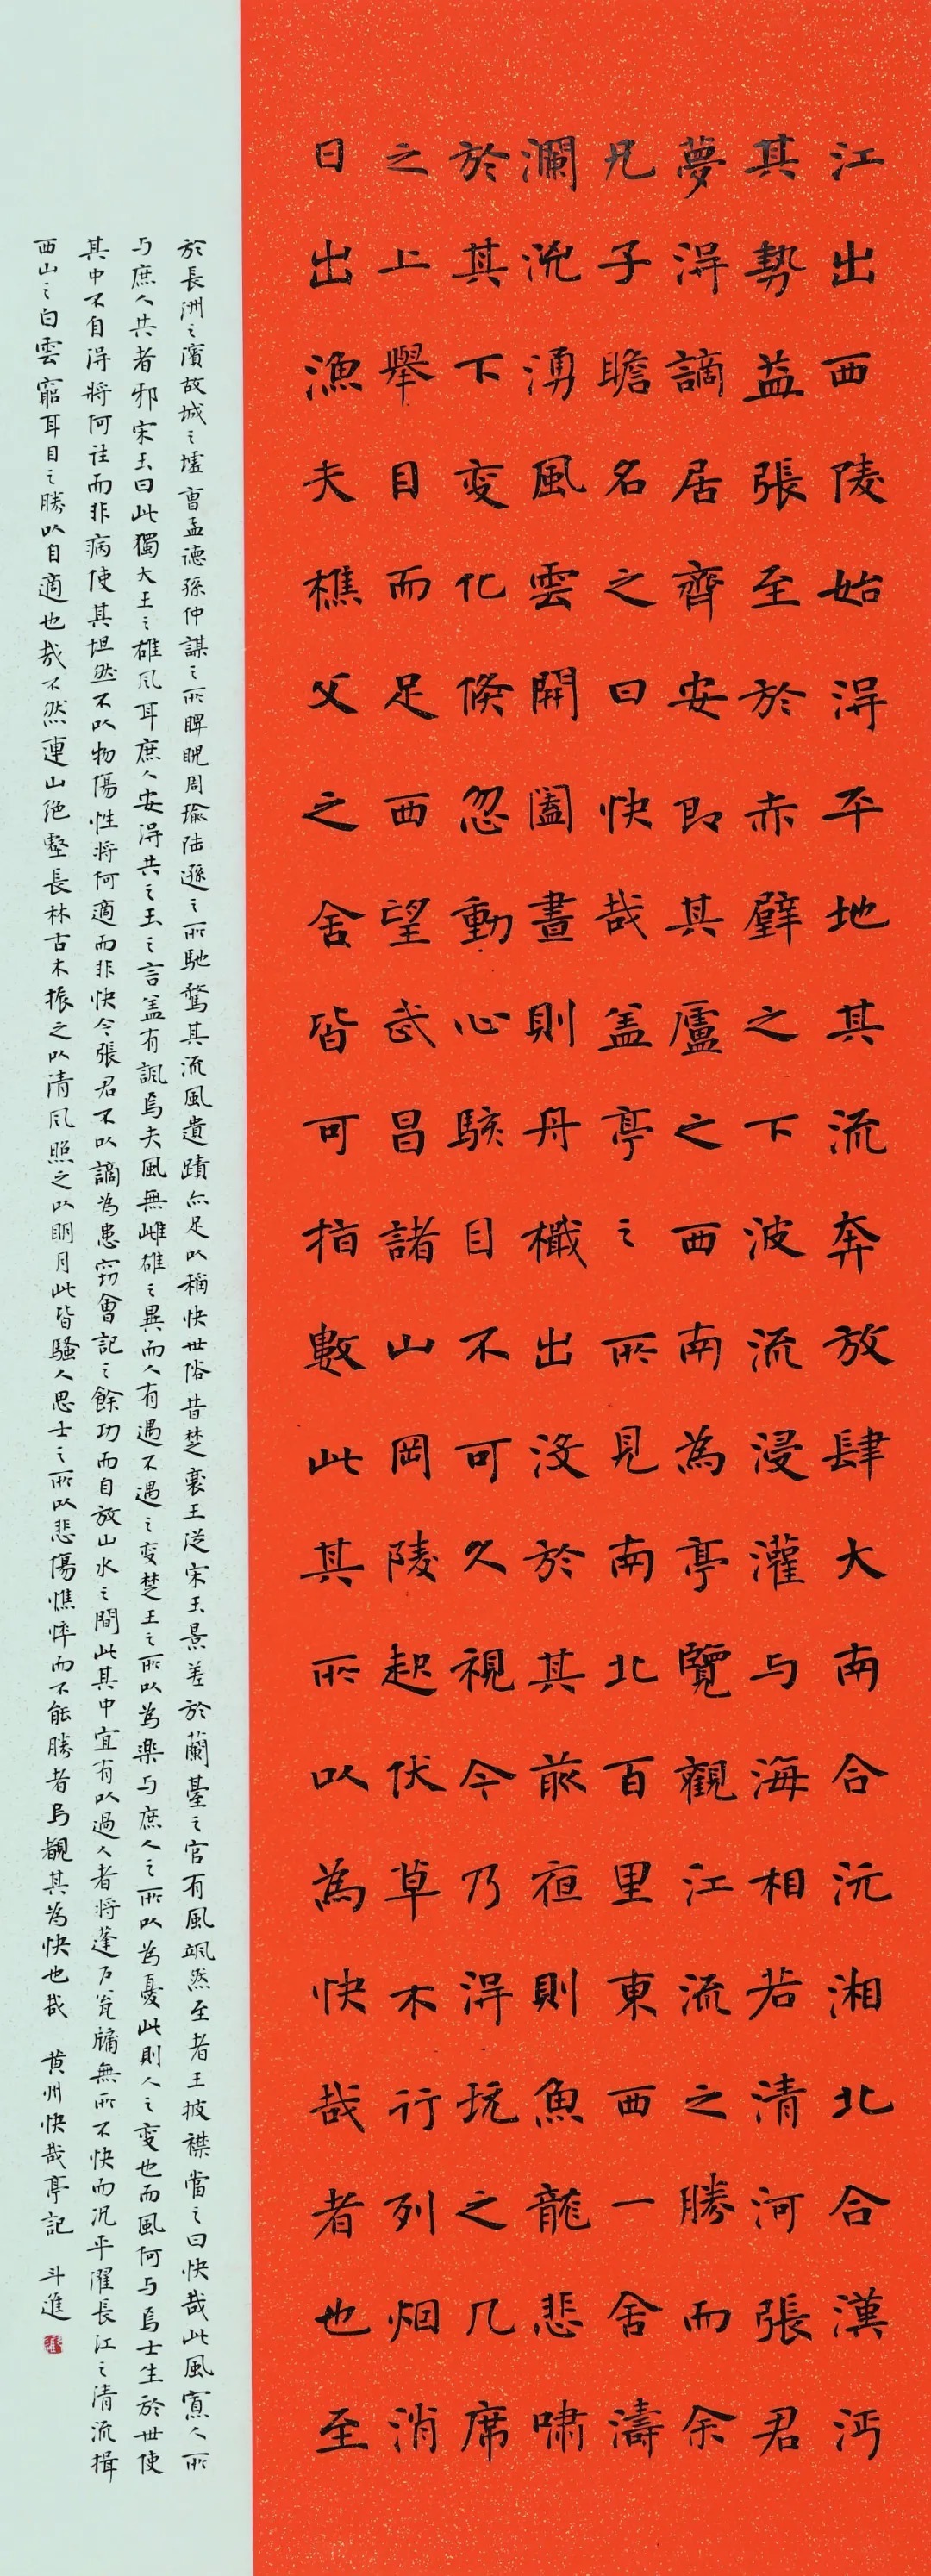 江出西陵始淂平地其流奔放肆大南合沅湘北合漢沔
其勢益張至於赤壁之下波流浸灌与海相若清河張君
夢淂謫居齊安即其廬之西南為亭覽觀江流之勝而余
兄子瞻名之曰快哉盖亭之所見南北百里東西一舍濤
瀾洶湧風雲開闔晝則舟檝出沒於其前夜則魚龍悲嘯
於其下变化倏忽動心駭目不可久視今乃淂玩之几席
之上舉目而足西望武昌諸山岡陵起伏草木行列烟消
日出漁夫樵父之舍皆可指數此其所以為快哉者也至
於長洲之濱故城之墟曹孟德孫仲謀之所睥睨周瑜陆遜之所馳騖其流風遺蹟亦足以稱快世俗昔楚襄王從宋玉景差於蘭臺之宫有風颯然至者王披襟當之曰快哉此風寡人所
与庶人共者邪宋玉曰此獨大王之雄风耳庶人安淂共之玉之言盖有諷焉夫風無雌雄之異而人有遇不遇之变楚王之所以為樂与庶人之所以為憂此則人之变也而風何与焉士生於世使
其中不自淂将何往而非病使其坦然不以物傷性将何適而非快今張君不以謫為患窃會記之餘功而自放山水之間此其中宜有以過人者将蓬户瓮牖無所不快而况乎濯長江之清流揖
西山之白雲窮耳目之勝以自適也哉不然連山绝壑長林古木振之以清风照之以明月此皆騷人思士之所以悲傷憔悴而不能勝者烏覩其為快也哉 黄州快哉亭記 斗進